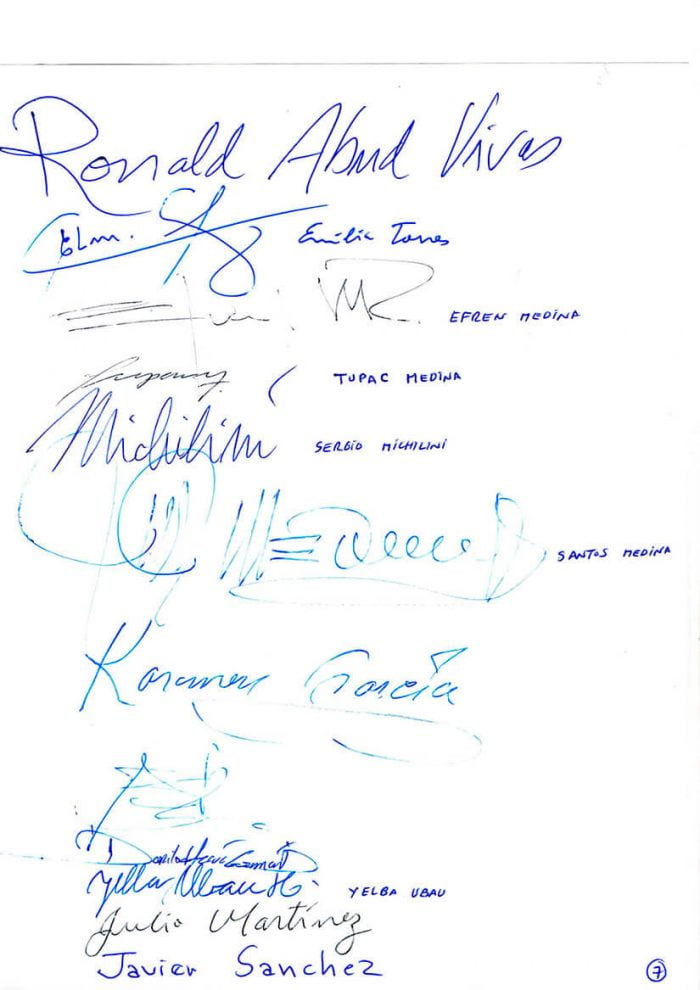 Ronald Abud Vivas
Elm. Emilio Torres
EFREN MEDINA
TUPAC MEDINA
Michilini SERGIO MICHILINI
SANTOS MEDINA
García
Yelba Ubau YELBA UBAU
Julio Martínez
Javier Sanchez
7